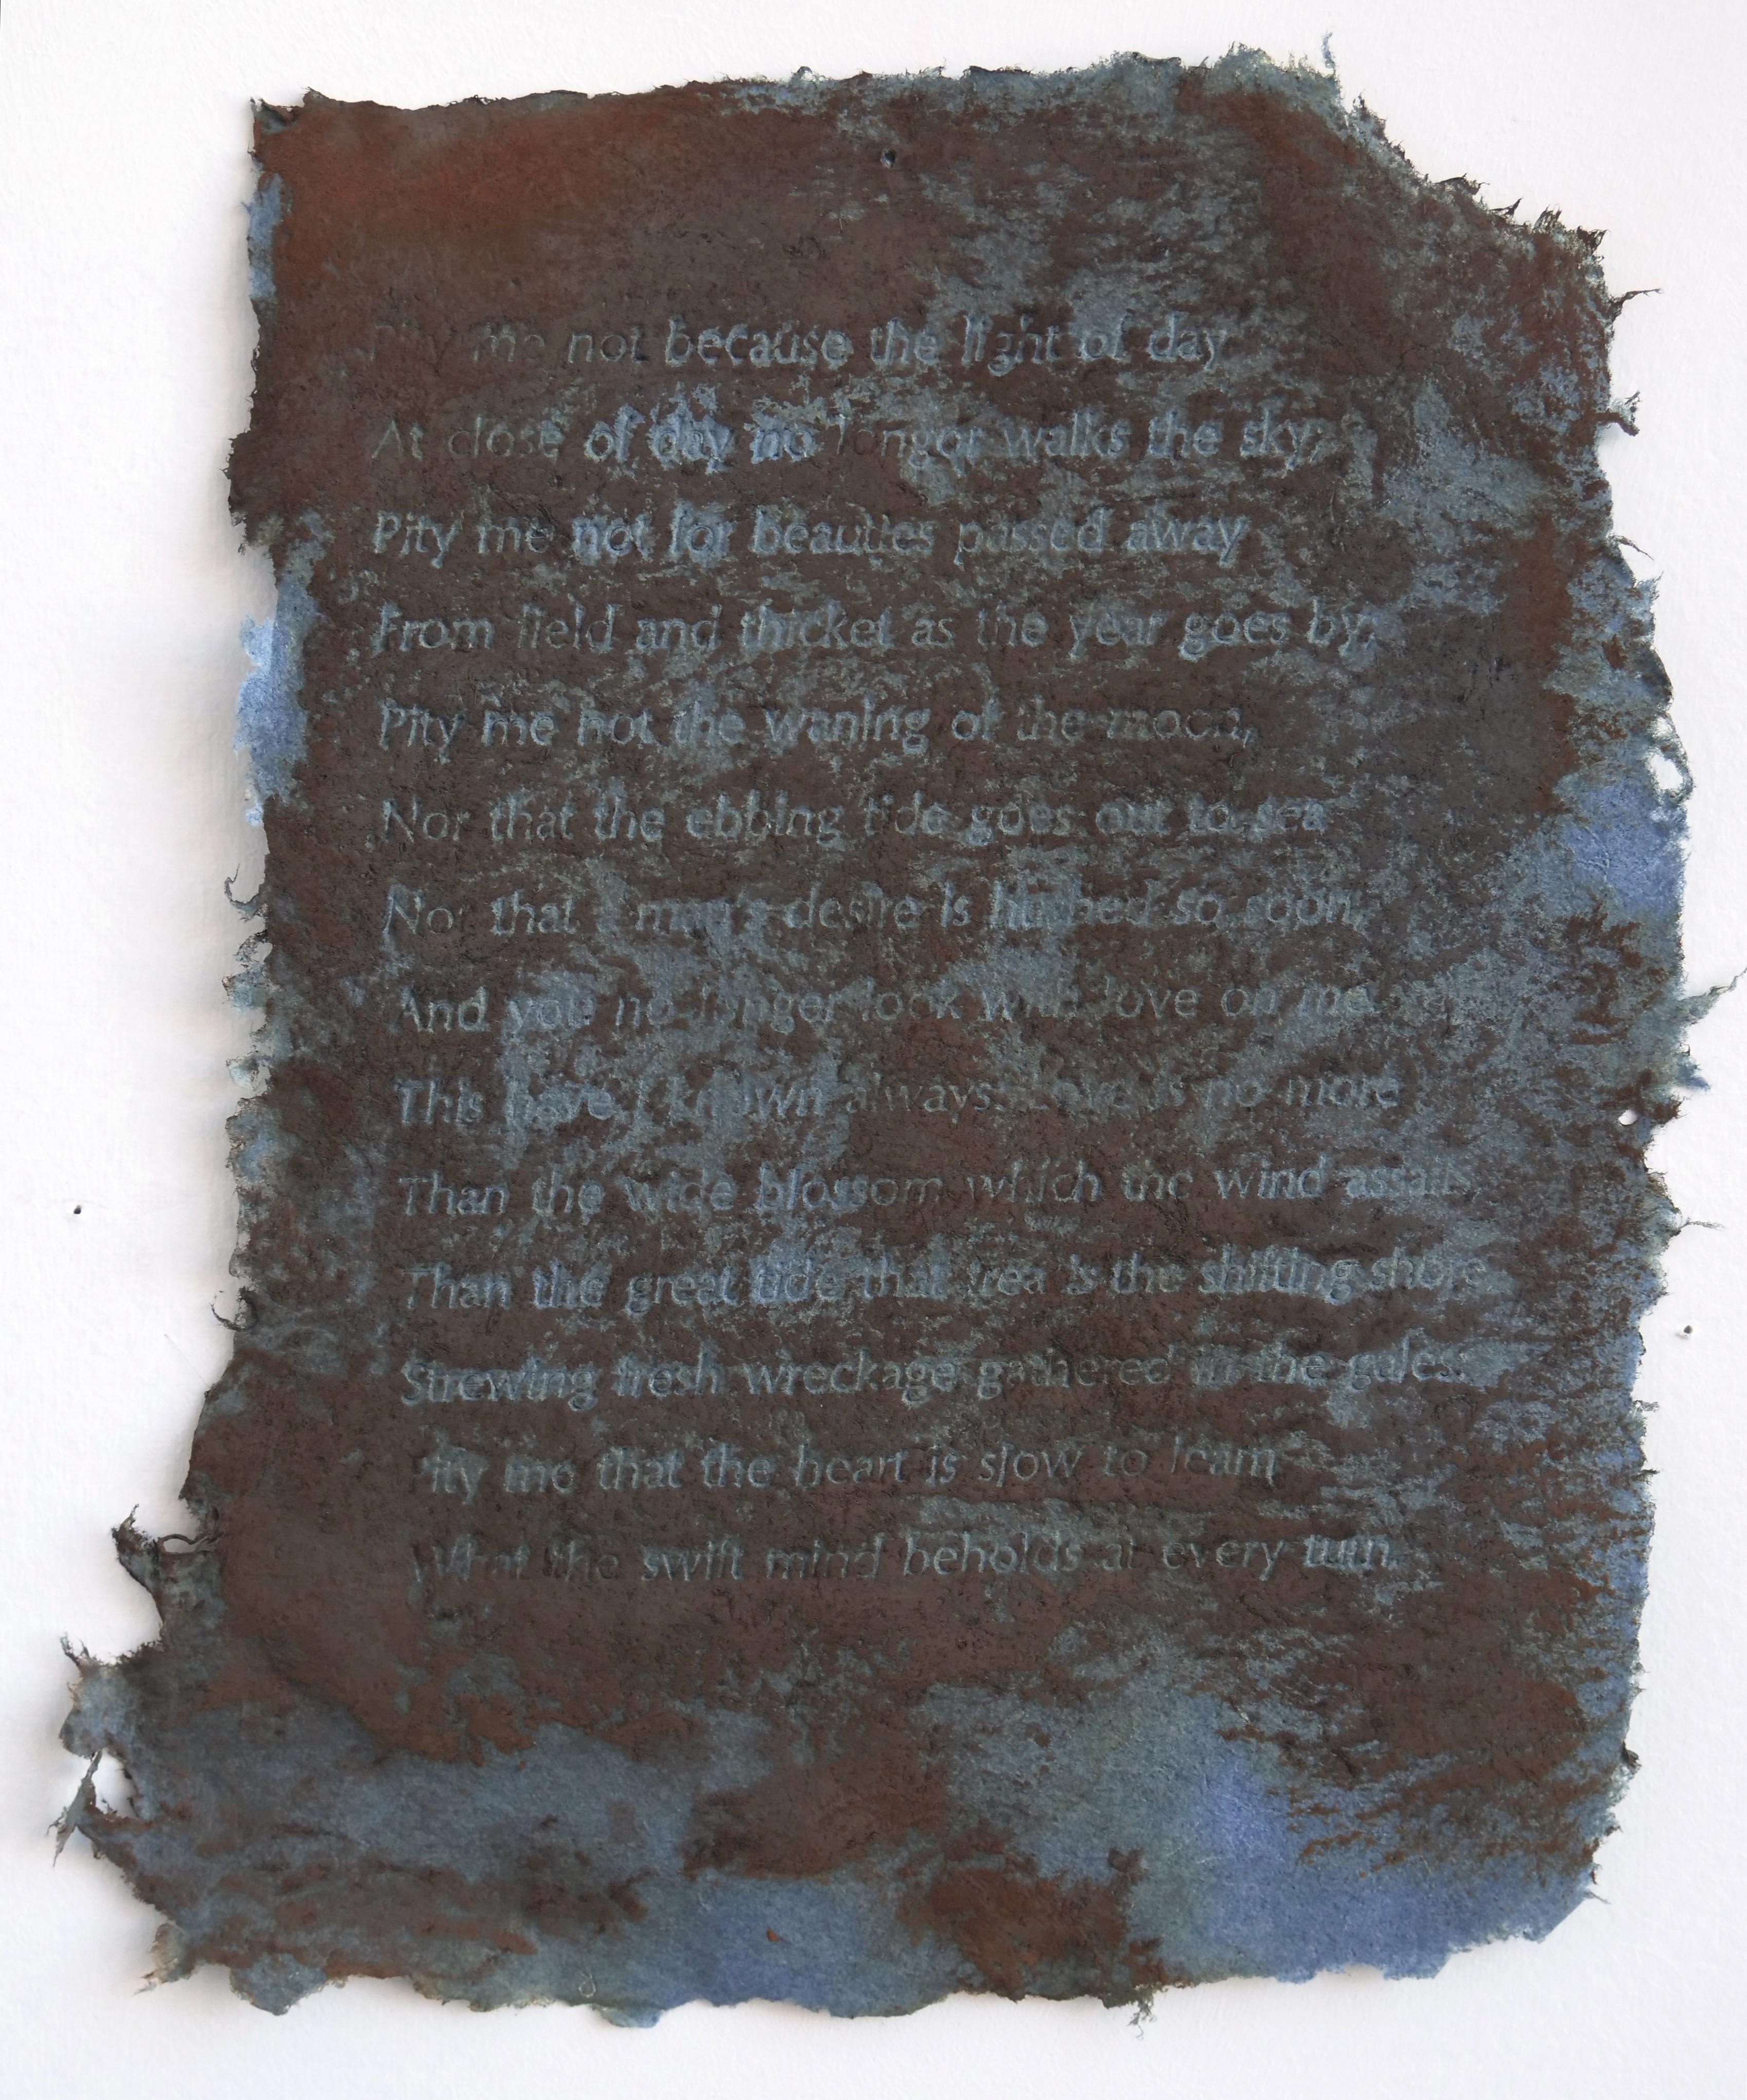 Pity me not because the light of day
At close of day no longer walks the sky;
Pity me not for beauties passed away
From field and thicket as the year goes by;
Pity me not the waning of the moon,
Nor that the ebbing tide goes out to sea
Nor that a man's desire is hushed so soon,
And you no longer look with love on me.
This have I known always: Love is no more
Than the wide blossom which the wind assails,
Than the great tide that treads the shifting shore,
Strewing fresh wreckage gathered in the gales:
Pity me that the heart is slow to learn
What the swift mind beholds at every turn.